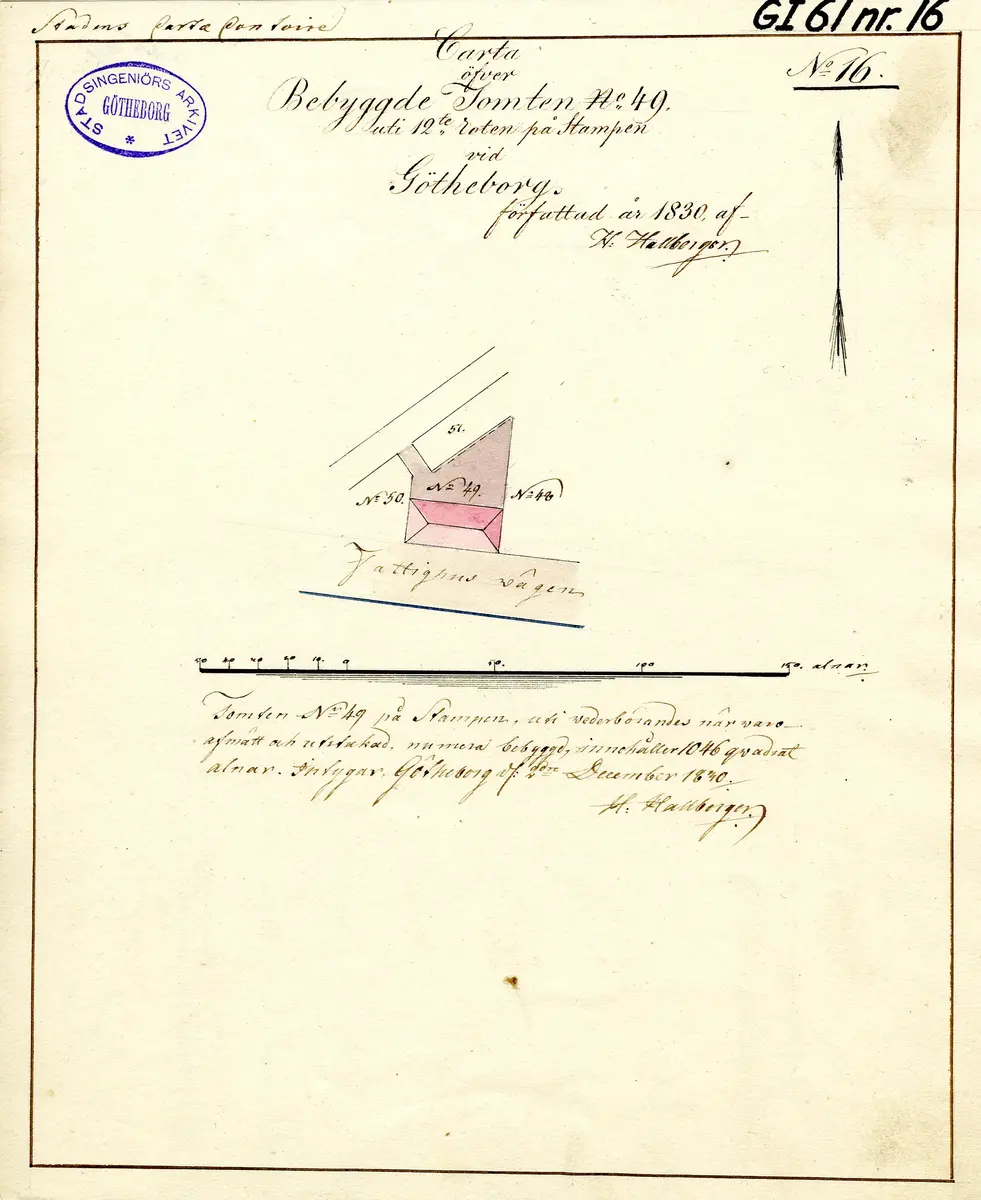 GI 61 nr. 16
Stadens Cartæ Contoire
Carta
öfver
Bebyggde Tomten No 49.
uti 12te Roten på Stampen
vid
Götheborg.
författad år 1830, af
H: Hallberger.
No 16.
STADSINGENIÖRS ARKIVET
GÖTHEBORG
*
51.
No 50.
No 49.
No 48
Fattighus vägen
50 40 30 20 10. 0 50. 100 150. alnar.
Tomten No 49 på Stampen, uti vederbörandes närvaro
afmätt och utstakad, numera bebyggd, innehåller 1046 qvadrat
alnar. Intygar. Götheborg d: December 1830.
H: Hallberger.